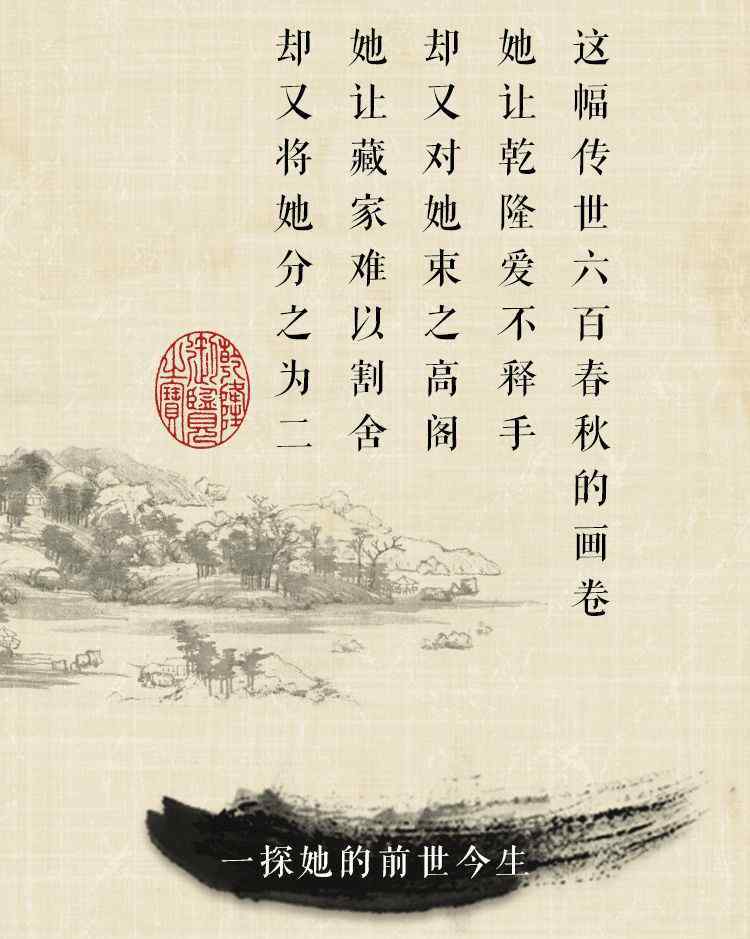 这幅传世六百春秋的画卷
她让乾隆爱不释手
却又对她束之高阁
她让藏家难以割舍
却又将她分之为二
乾隆
御覽
之寶
一探她的前世今生